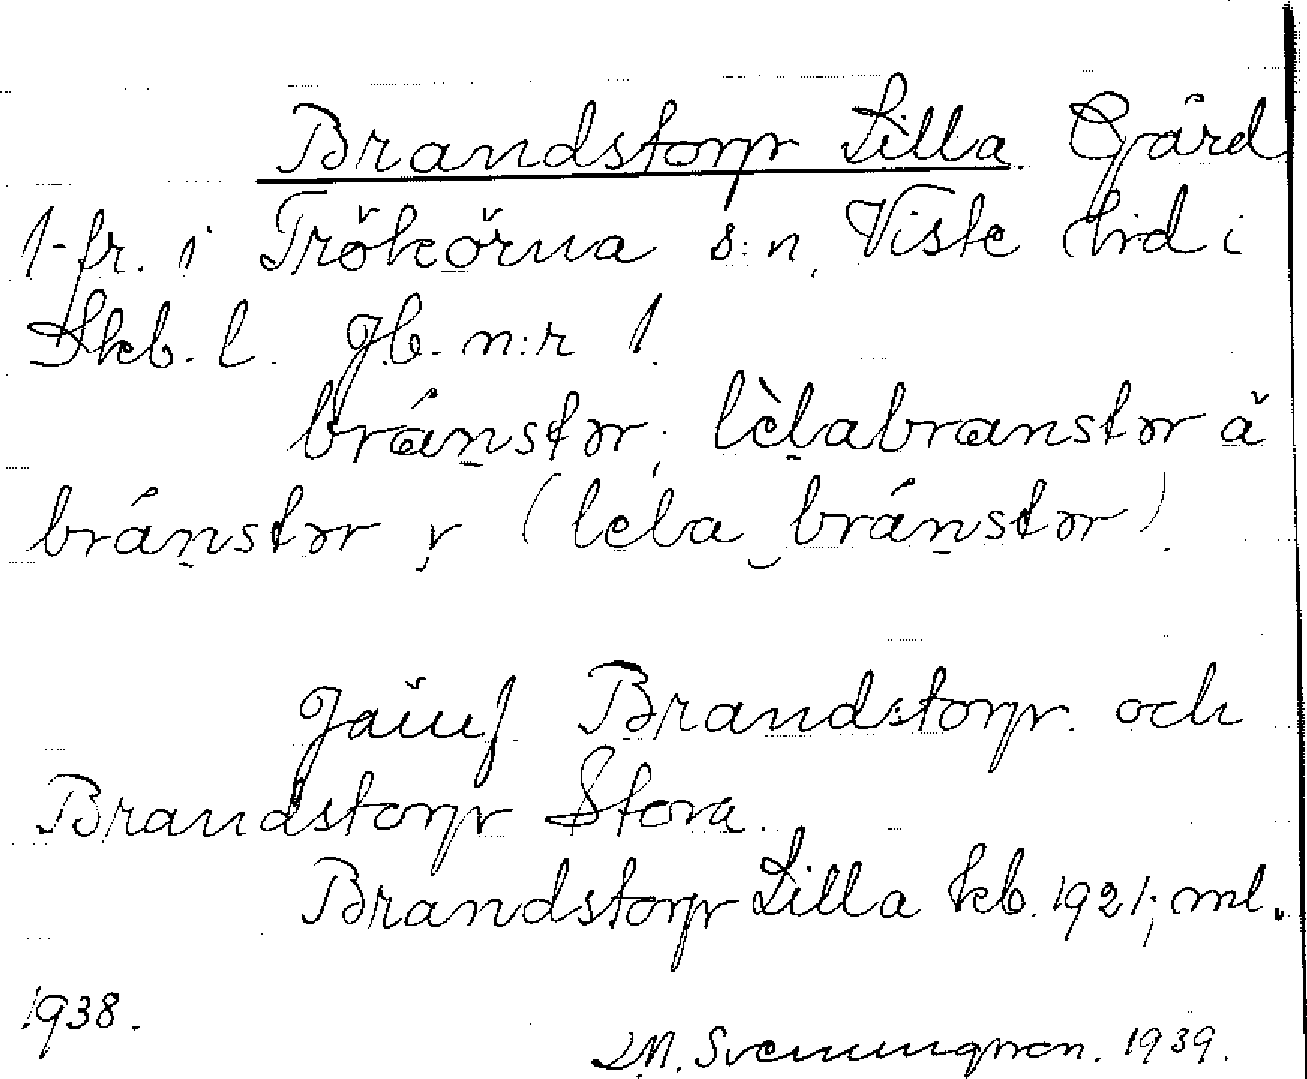 Brandstorp Lilla Gård
1-fr. i Trökörna s:n, Viste hd i
Skb. l. Jb. n:r 1.
bránstər, lèlabranstər å
bránstər, r (lela bránstər).
Jämf. Brandstorp och
Brandstorp Stora.
Brandstorp Lilla kb. 1921; ml.
1938.
Svenungson. 1939.